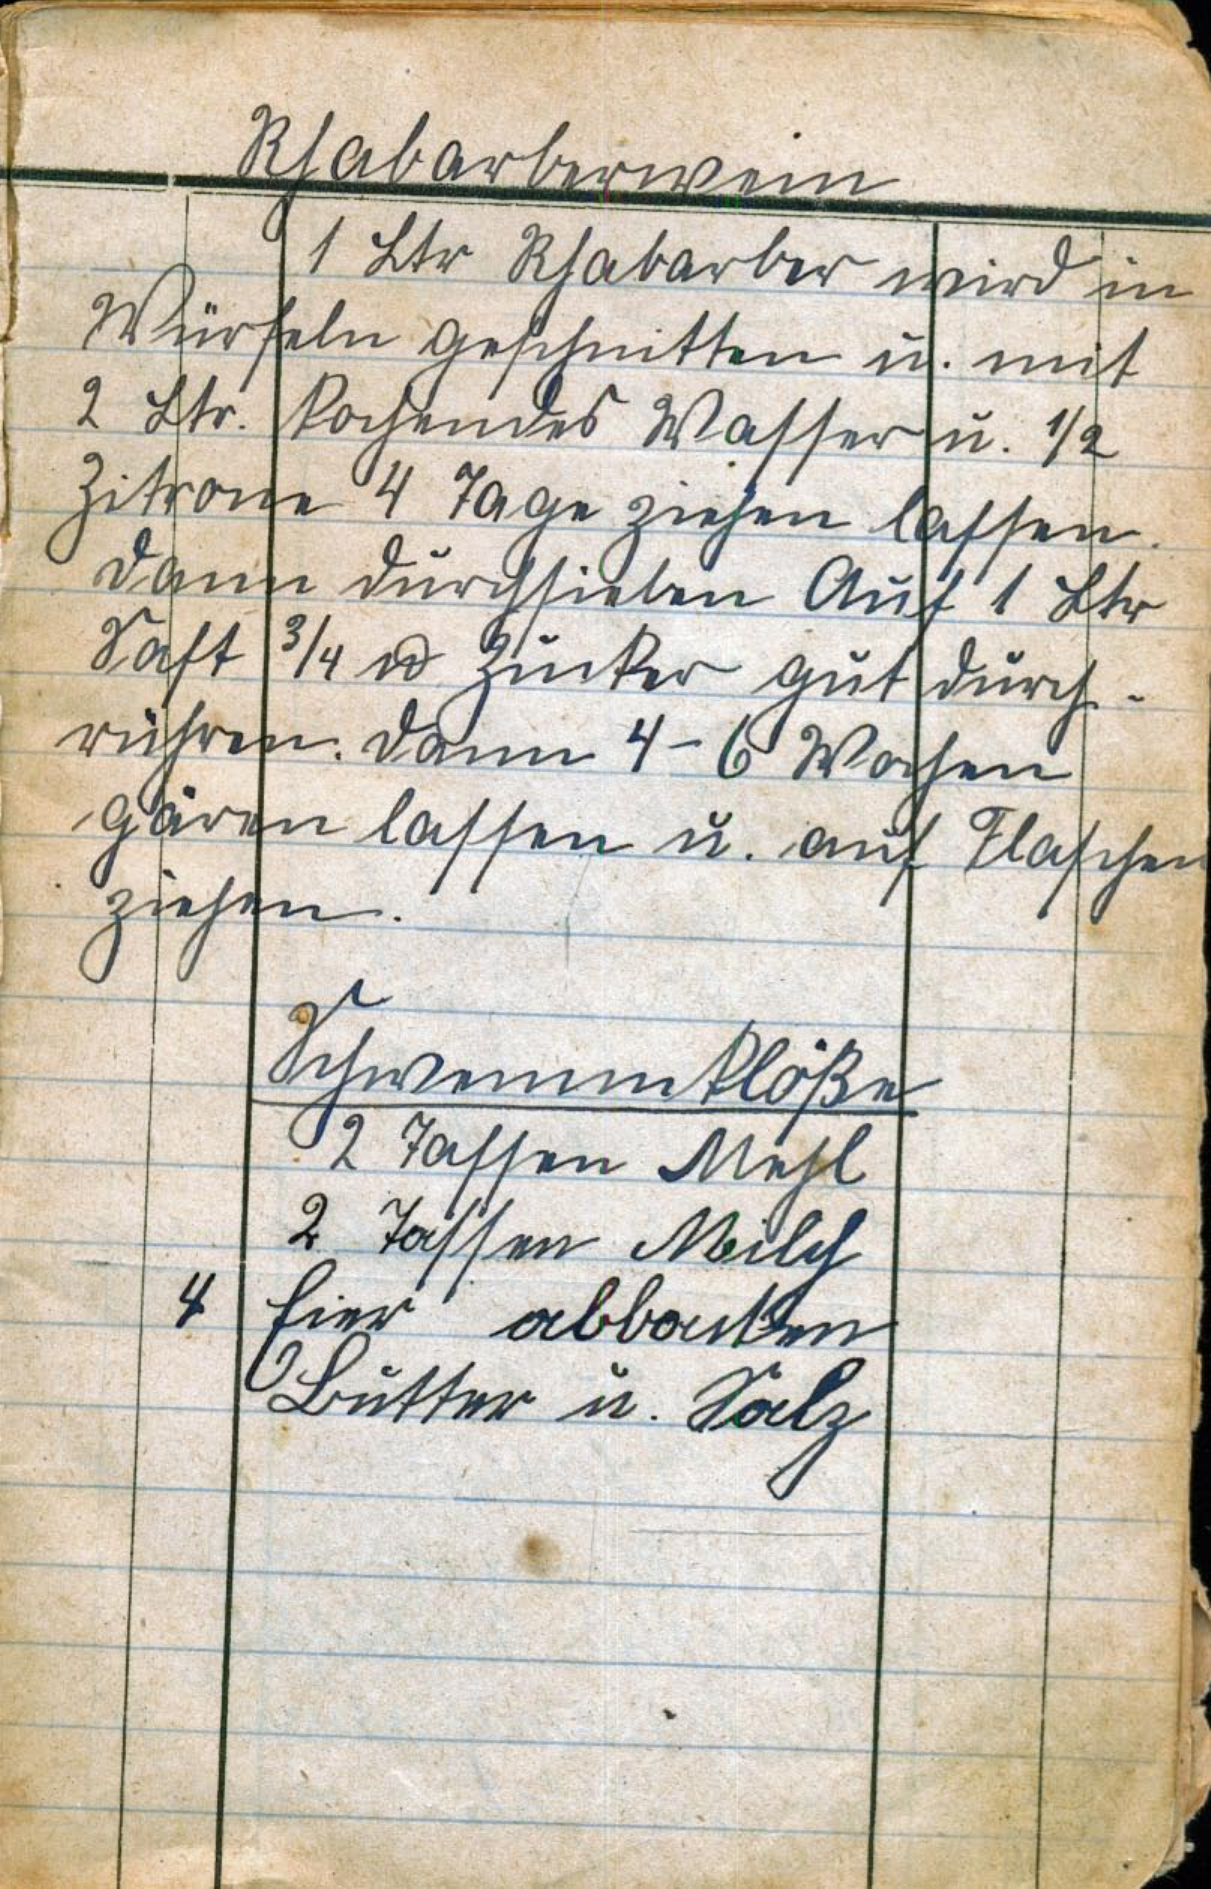 Rhabarberwein
1 Ltr Rhabarber wird in
Würfeln geschnitten u. mit
2 Ltr. kochendes Wasser u. 1/2
Zitrone 4 Tage ziehen lassen.
Dann durchsieben Auf 1 Ltr
Saft 3/4 ℔ Zucker gut durch-
rühren. Dann 4-6 Wochen
gären lassen u. auf Flaschen
ziehen.
Schwemmklöße
2 Tassen Mehl
2 Tassen Milch
4 Eier abbacken
Butter u. Salz